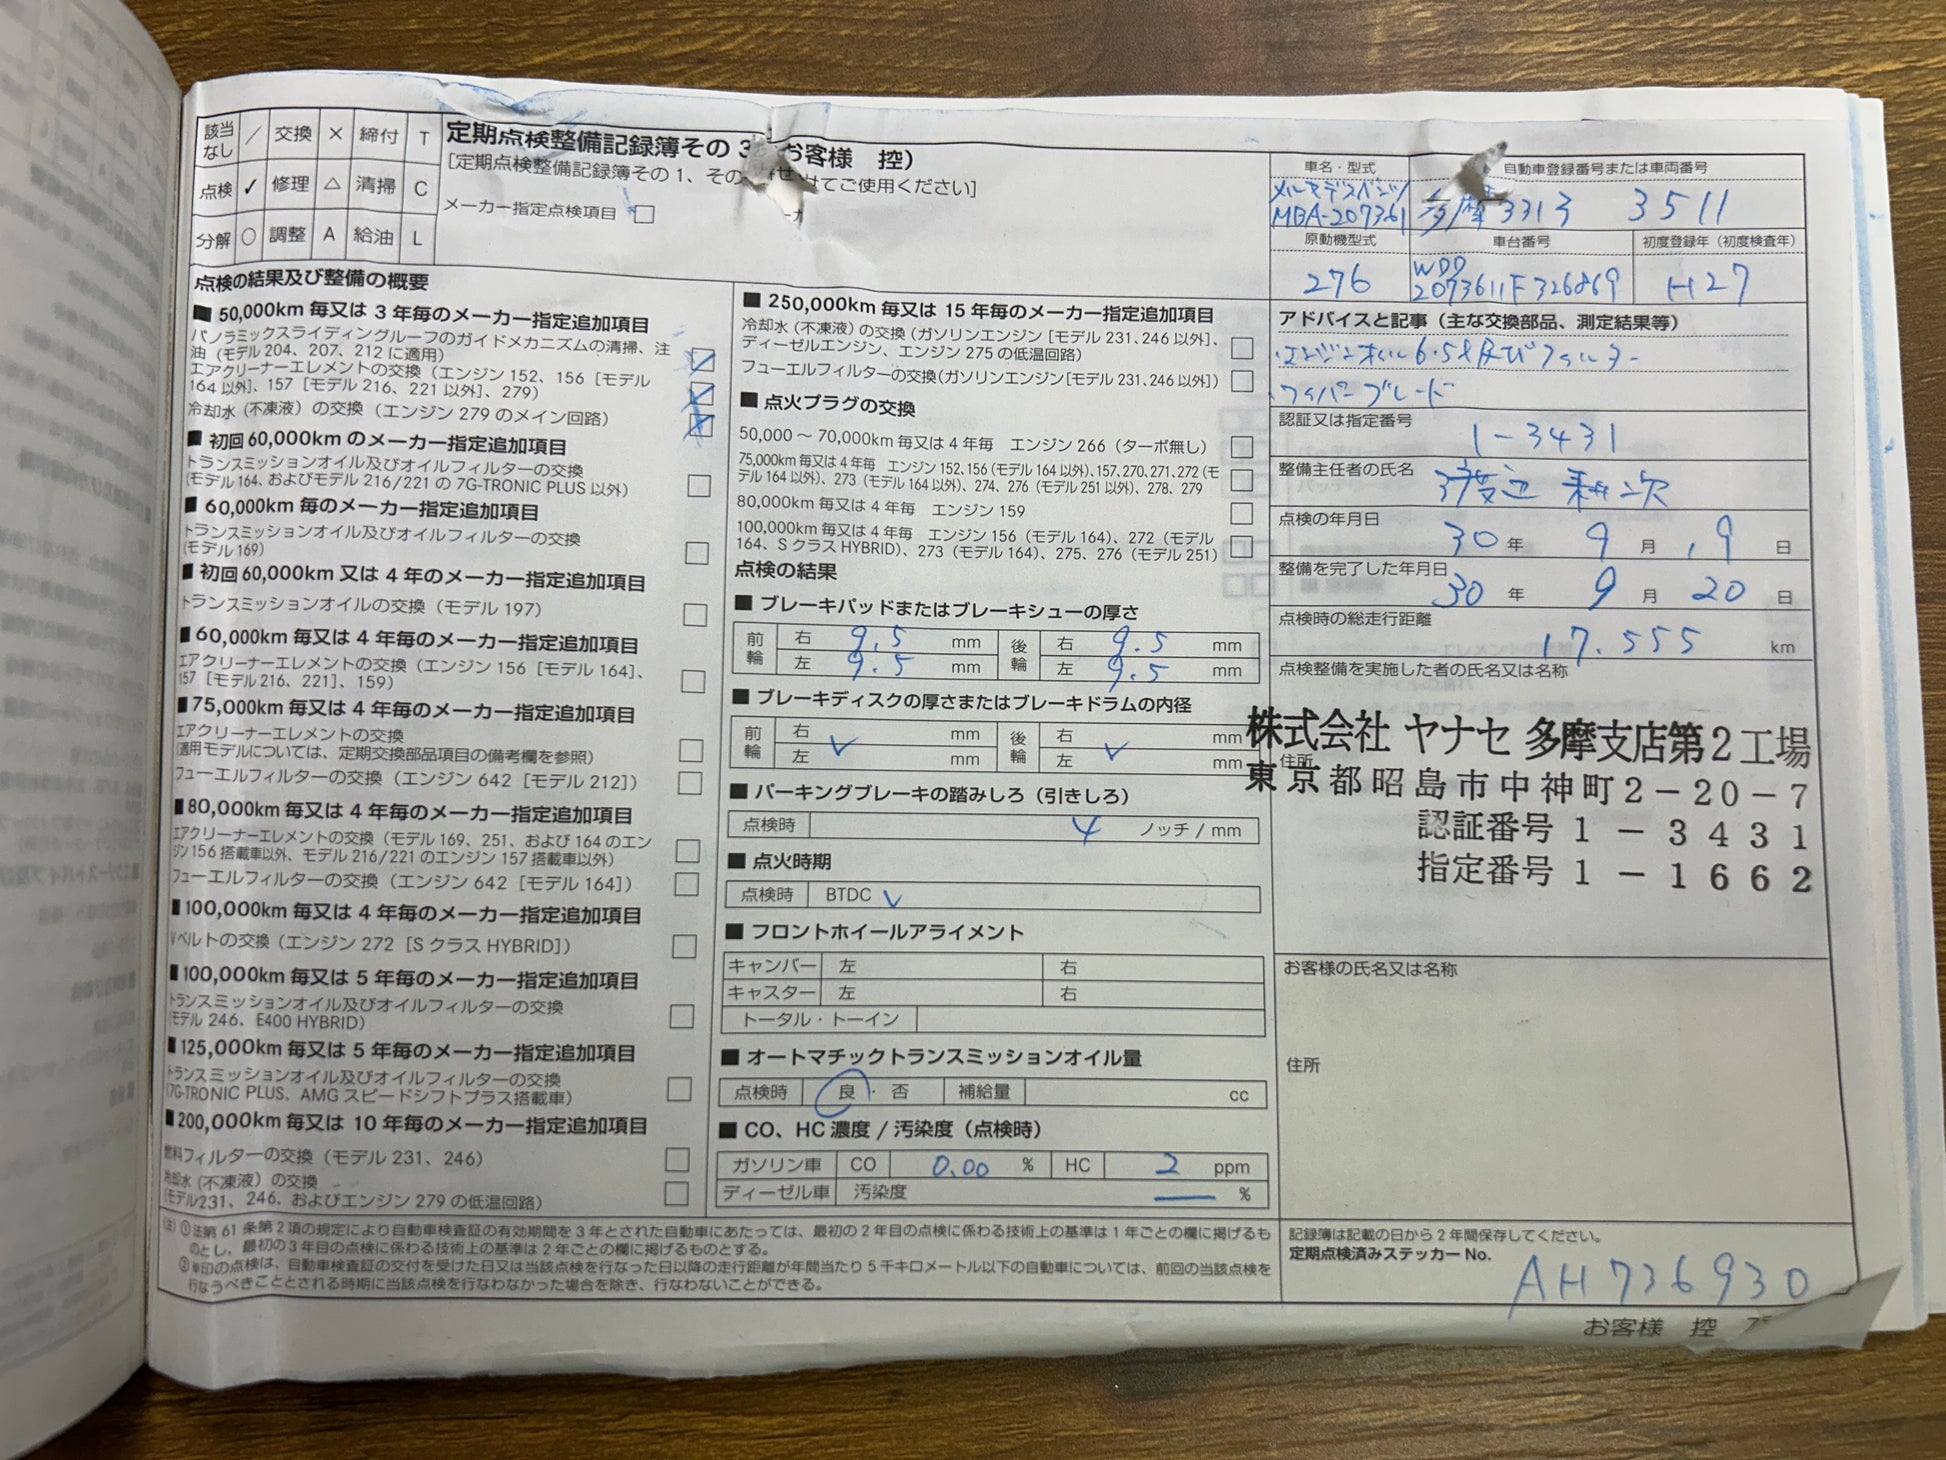 該当なし ／ 交換 × 締付 T
点検 ✓ 修理 △ 清掃 C
分解 ○ 調整 A 給油 L
定期点検整備記録簿その3 お客様 控）
［定期点検整備記録簿その1、その せてご使用ください］
メーカー指定点検項目 □
点検の結果及び整備の概要
■ 50,000km 毎又は 3 年毎のメーカー指定追加項目
パノラミックスライディングルーフのガイドメカニズムの清掃、注
油（モデル 204、207、212 に適用）
エアクリーナーエレメントの交換（エンジン 152、156［モデル
164 以外］、157［モデル 216、221 以外］、279）
冷却水（不凍液）の交換（エンジン 279 のメイン回路）
■ 初回 60,000km のメーカー指定追加項目
トランスミッションオイル及びオイルフィルターの交換
（モデル 164、およびモデル 216/221 の 7G-TRONIC PLUS 以外）
■ 60,000km 毎のメーカー指定追加項目
トランスミッションオイル及びオイルフィルターの交換
（モデル 169）
■ 初回 60,000km 又は 4 年のメーカー指定追加項目
トランスミッションオイルの交換（モデル 197）
■ 60,000km 毎又は 4 年毎のメーカー指定追加項目
エアクリーナーエレメントの交換（エンジン 156［モデル 164］、
157［モデル 216、221］、159）
■ 75,000km 毎又は 4 年毎のメーカー指定追加項目
エアクリーナーエレメントの交換
（適用モデルについては、定期交換部品項目の備考欄を参照）
フューエルフィルターの交換（エンジン 642［モデル 212］）
■ 80,000km 毎又は 4 年毎のメーカー指定追加項目
エアクリーナーエレメントの交換（モデル 169、251、および 164 のエン
ジン 156 搭載車以外、モデル 216/221 のエンジン 157 搭載車以外）
フューエルフィルターの交換（エンジン 642［モデル 164］）
■ 100,000km 毎又は 4 年毎のメーカー指定追加項目
Vベルトの交換（エンジン 272［S クラス HYBRID］）
■ 100,000km 毎又は 5 年毎のメーカー指定追加項目
トランスミッションオイル及びオイルフィルターの交換
（モデル 246、E400 HYBRID）
■ 125,000km 毎又は 5 年毎のメーカー指定追加項目
トランスミッションオイル及びオイルフィルターの交換
（7G-TRONIC PLUS、AMG スピードシフトプラス搭載車）
■ 200,000km 毎又は 10 年毎のメーカー指定追加項目
燃料フィルターの交換（モデル 231、246）
冷却水（不凍液）の交換
（モデル231、246、およびエンジン 279 の低温回路）
■ 250,000km 毎又は 15 年毎のメーカー指定追加項目
冷却水（不凍液）の交換（ガソリンエンジン［モデル 231、246 以外］、
ディーゼルエンジン、エンジン 275 の低温回路）
フューエルフィルターの交換（ガソリンエンジン［モデル 231、246 以外］）
■ 点火プラグの交換
50,000 ～ 70,000km 毎又は 4 年毎 エンジン 266（ターボ無し）
75,000km 毎又は 4 年毎 エンジン 152、156（モデル 164 以外）、157、270、271、272（モ
デル 164 以外）、273（モデル 164 以外）、274、276（モデル 251 以外）、278、279
80,000km 毎又は 4 年毎 エンジン 159
100,000km 毎又は 4 年毎 エンジン 156（モデル 164）、272（モデル
164、S クラス HYBRID）、273（モデル 164）、275、276（モデル 251）
点検の結果
■ ブレーキパッドまたはブレーキシューの厚さ
前輪 右 9.5 mm 後輪 右 9.5 mm
左 9.5 mm 左 9.5 mm
■ ブレーキディスクの厚さまたはブレーキドラムの内径
前輪 右 mm 後輪 右 mm
左 ✓ mm 左 ✓ mm
■ パーキングブレーキの踏みしろ（引きしろ）
点検時 4 ノッチ / mm
■ 点火時期
点検時 BTDC ✓
■ フロントホイールアライメント
キャンバー 左 右
キャスター 左 右
トータル・トーイン
■ オートマチックトランスミッションオイル量
点検時 良・否 補給量 cc
■ CO、HC 濃度 / 汚染度（点検時）
ガソリン車 CO 0.00 % HC 2 ppm
ディーゼル車 汚染度 — %
車名・型式 自動車登録番号または車両番号
メルセデスベンツ
MBA-207361 多摩 331ろ 3511
原動機型式 車台番号 初度登録年（初度検査年）
276 WDD
2073611F326869 H27
アドバイスと記事（主な交換部品、測定結果等）
・エンジンオイル6.5ℓ及びフィルター
・ワイパーブレード
認証又は指定番号
1-3431
整備主任者の氏名
点検の年月日
30 年 9 月 19 日
整備を完了した年月日
30 年 9 月 20 日
点検時の総走行距離
17.555 km
点検整備を実施した者の氏名又は名称
株式会社 ヤナセ 多摩支店第2工場
住所
東京都昭島市中神町2－20－7
認証番号 1 － 3 4 3 1
指定番号 1 － 1 6 6 2
お客様の氏名又は名称
住所
（注）①法第 61 条第 2 項の規定により自動車検査証の有効期間を 3 年とされた自動車にあたっては、最初の 2 年目の点検に係わる技術上の基準は 1 年ごとの欄に掲げるも
のとし、最初の 3 年目の点検に係わる技術上の基準は 2 年ごとの欄に掲げるものとする。
②※印の点検は、自動車検査証の交付を受けた日又は当該点検を行なった日以降の走行距離が年間当たり 5 千キロメートル以下の自動車については、前回の当該点検を
行なうべきこととされる時期に当該点検を行なわなかった場合を除き、行なわないことができる。
記録簿は記載の日から 2 年間保存してください。
定期点検済みステッカー No.
AH736930
お客様 控